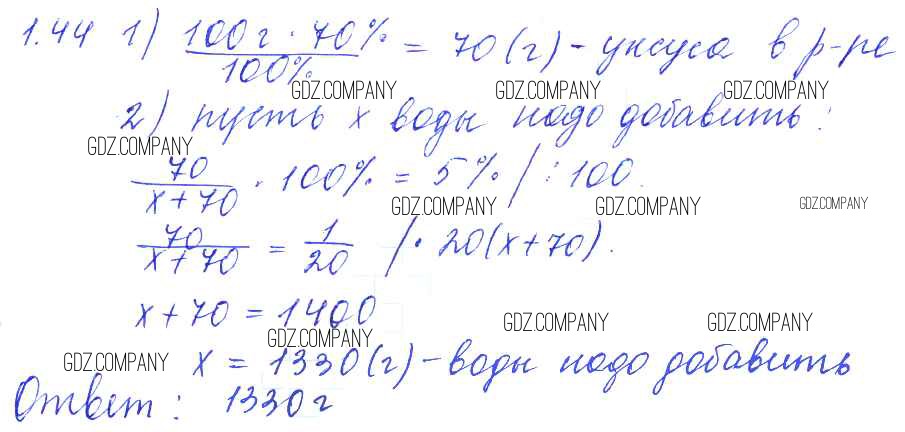 1.44 1) 100г · 70% / 100% = 70(г) - уксуса в р-ре
GDZ.COMPANY GDZ.COMPANY GDZ.COMPANY
2) пусть x воды надо добавить:
GDZ.COMPANY
70 / x+70 · 100% = 5% | : 100.
GDZ.COMPANY GDZ.COMPANY GDZ.COMPANY
70 / x+70 = 1 / 20 | · 20(x+70).
x+70 = 1400
GDZ.COMPANY GDZ.COMPANY
GDZ.COMPANY GDZ.COMPANY
x = 1330(г) - воды надо добавить
Ответ: 1330г